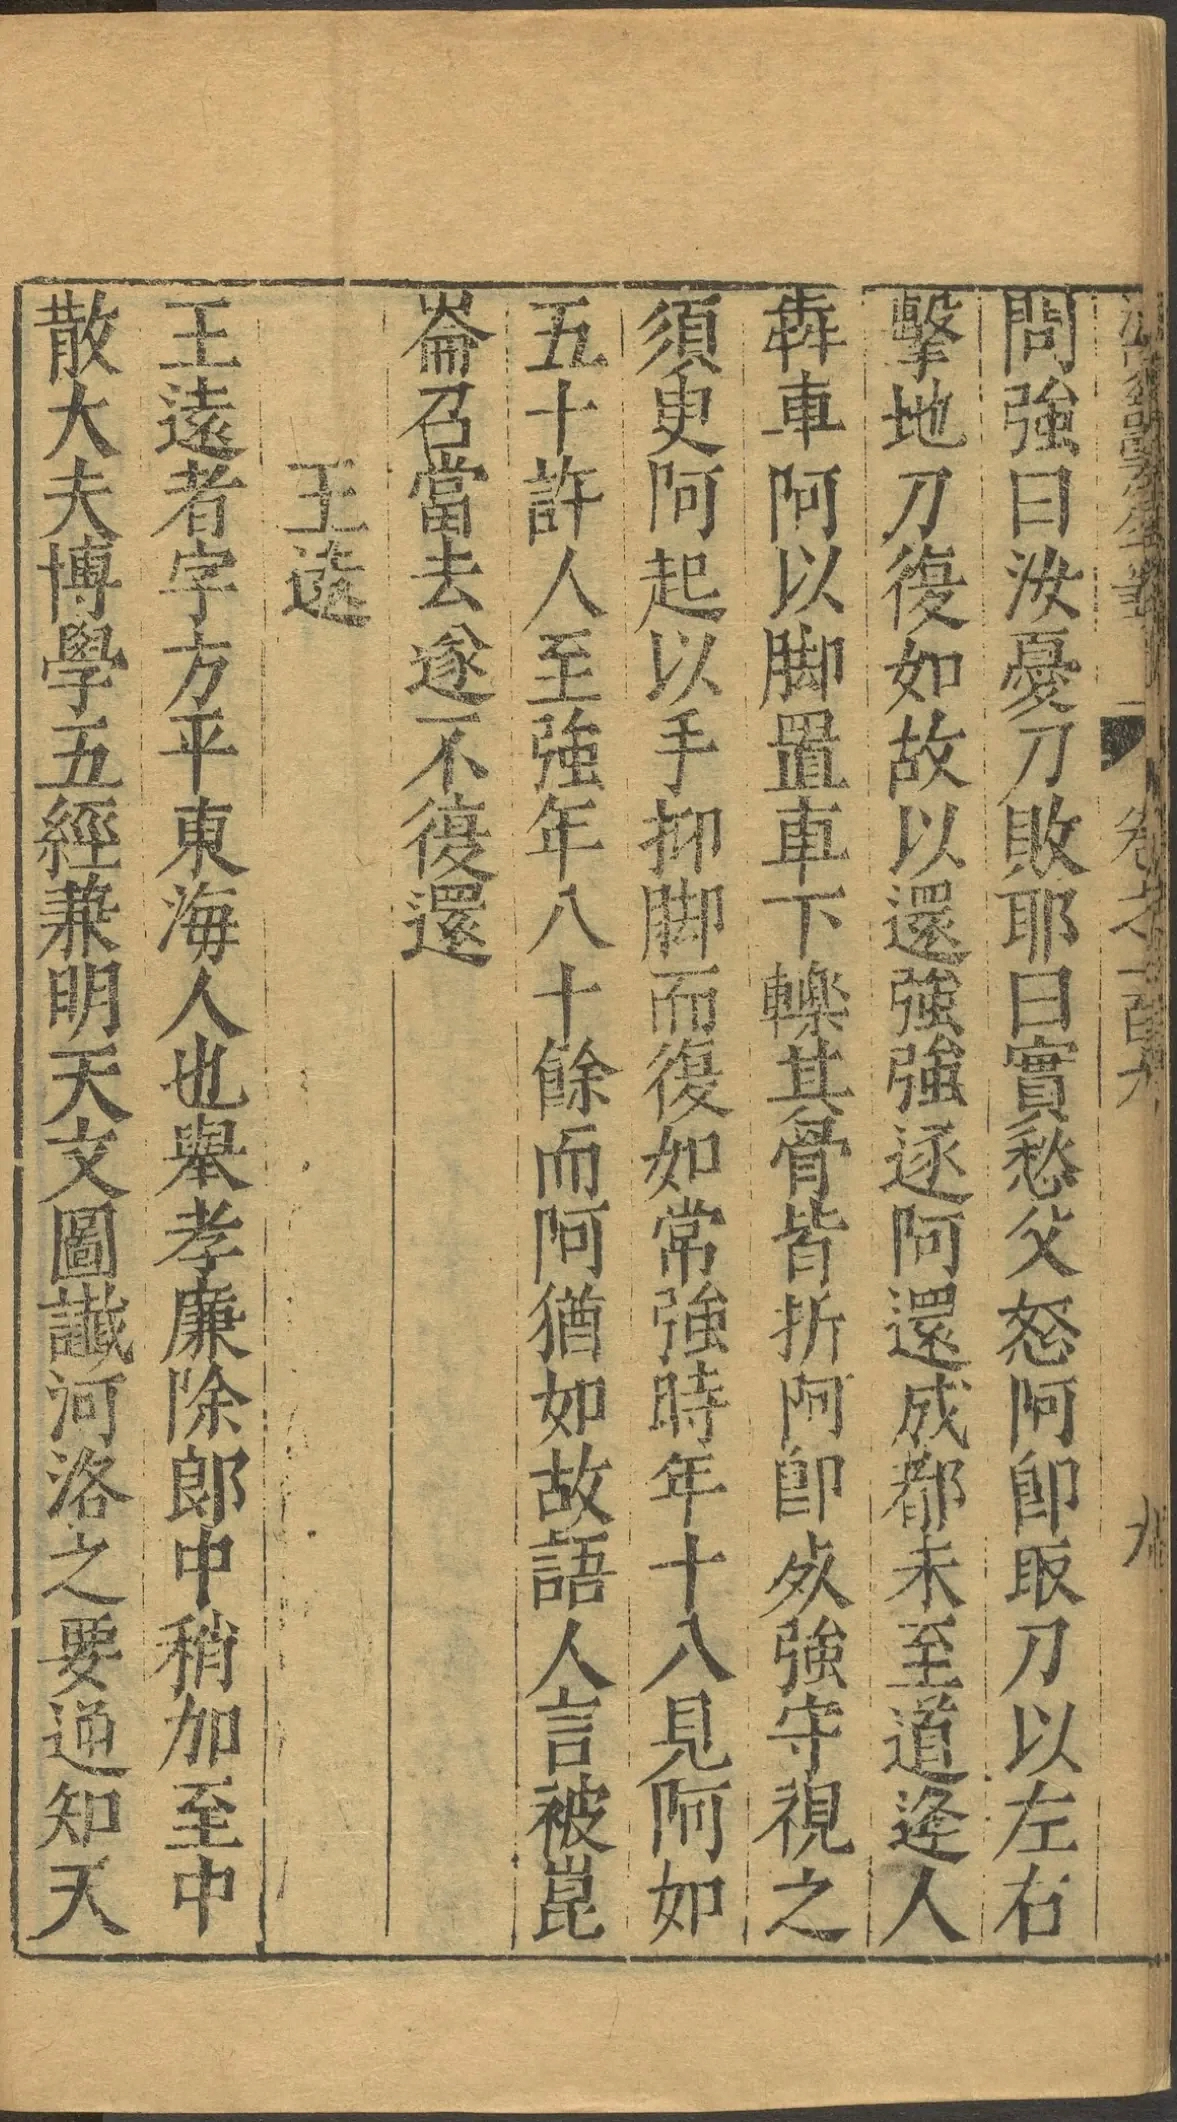 問強曰汝憂刀敗耶曰實愁父怒阿卽取刀以左右
擊地刀復如故以還強強逐阿還成都未至道逢人
犇車阿以脚置車下轢其骨皆折阿卽死強守視之
須臾阿起以手抑脚而復如常強時年十八見阿如
五十許人至強年八十餘而阿猶如故語人言被崑
崙召當去遂不復還
王遠
王遠者字方平東海人也舉孝廉除郎中稍加至中
散大夫博學五經兼明天文圖讖河洛之要逆知天